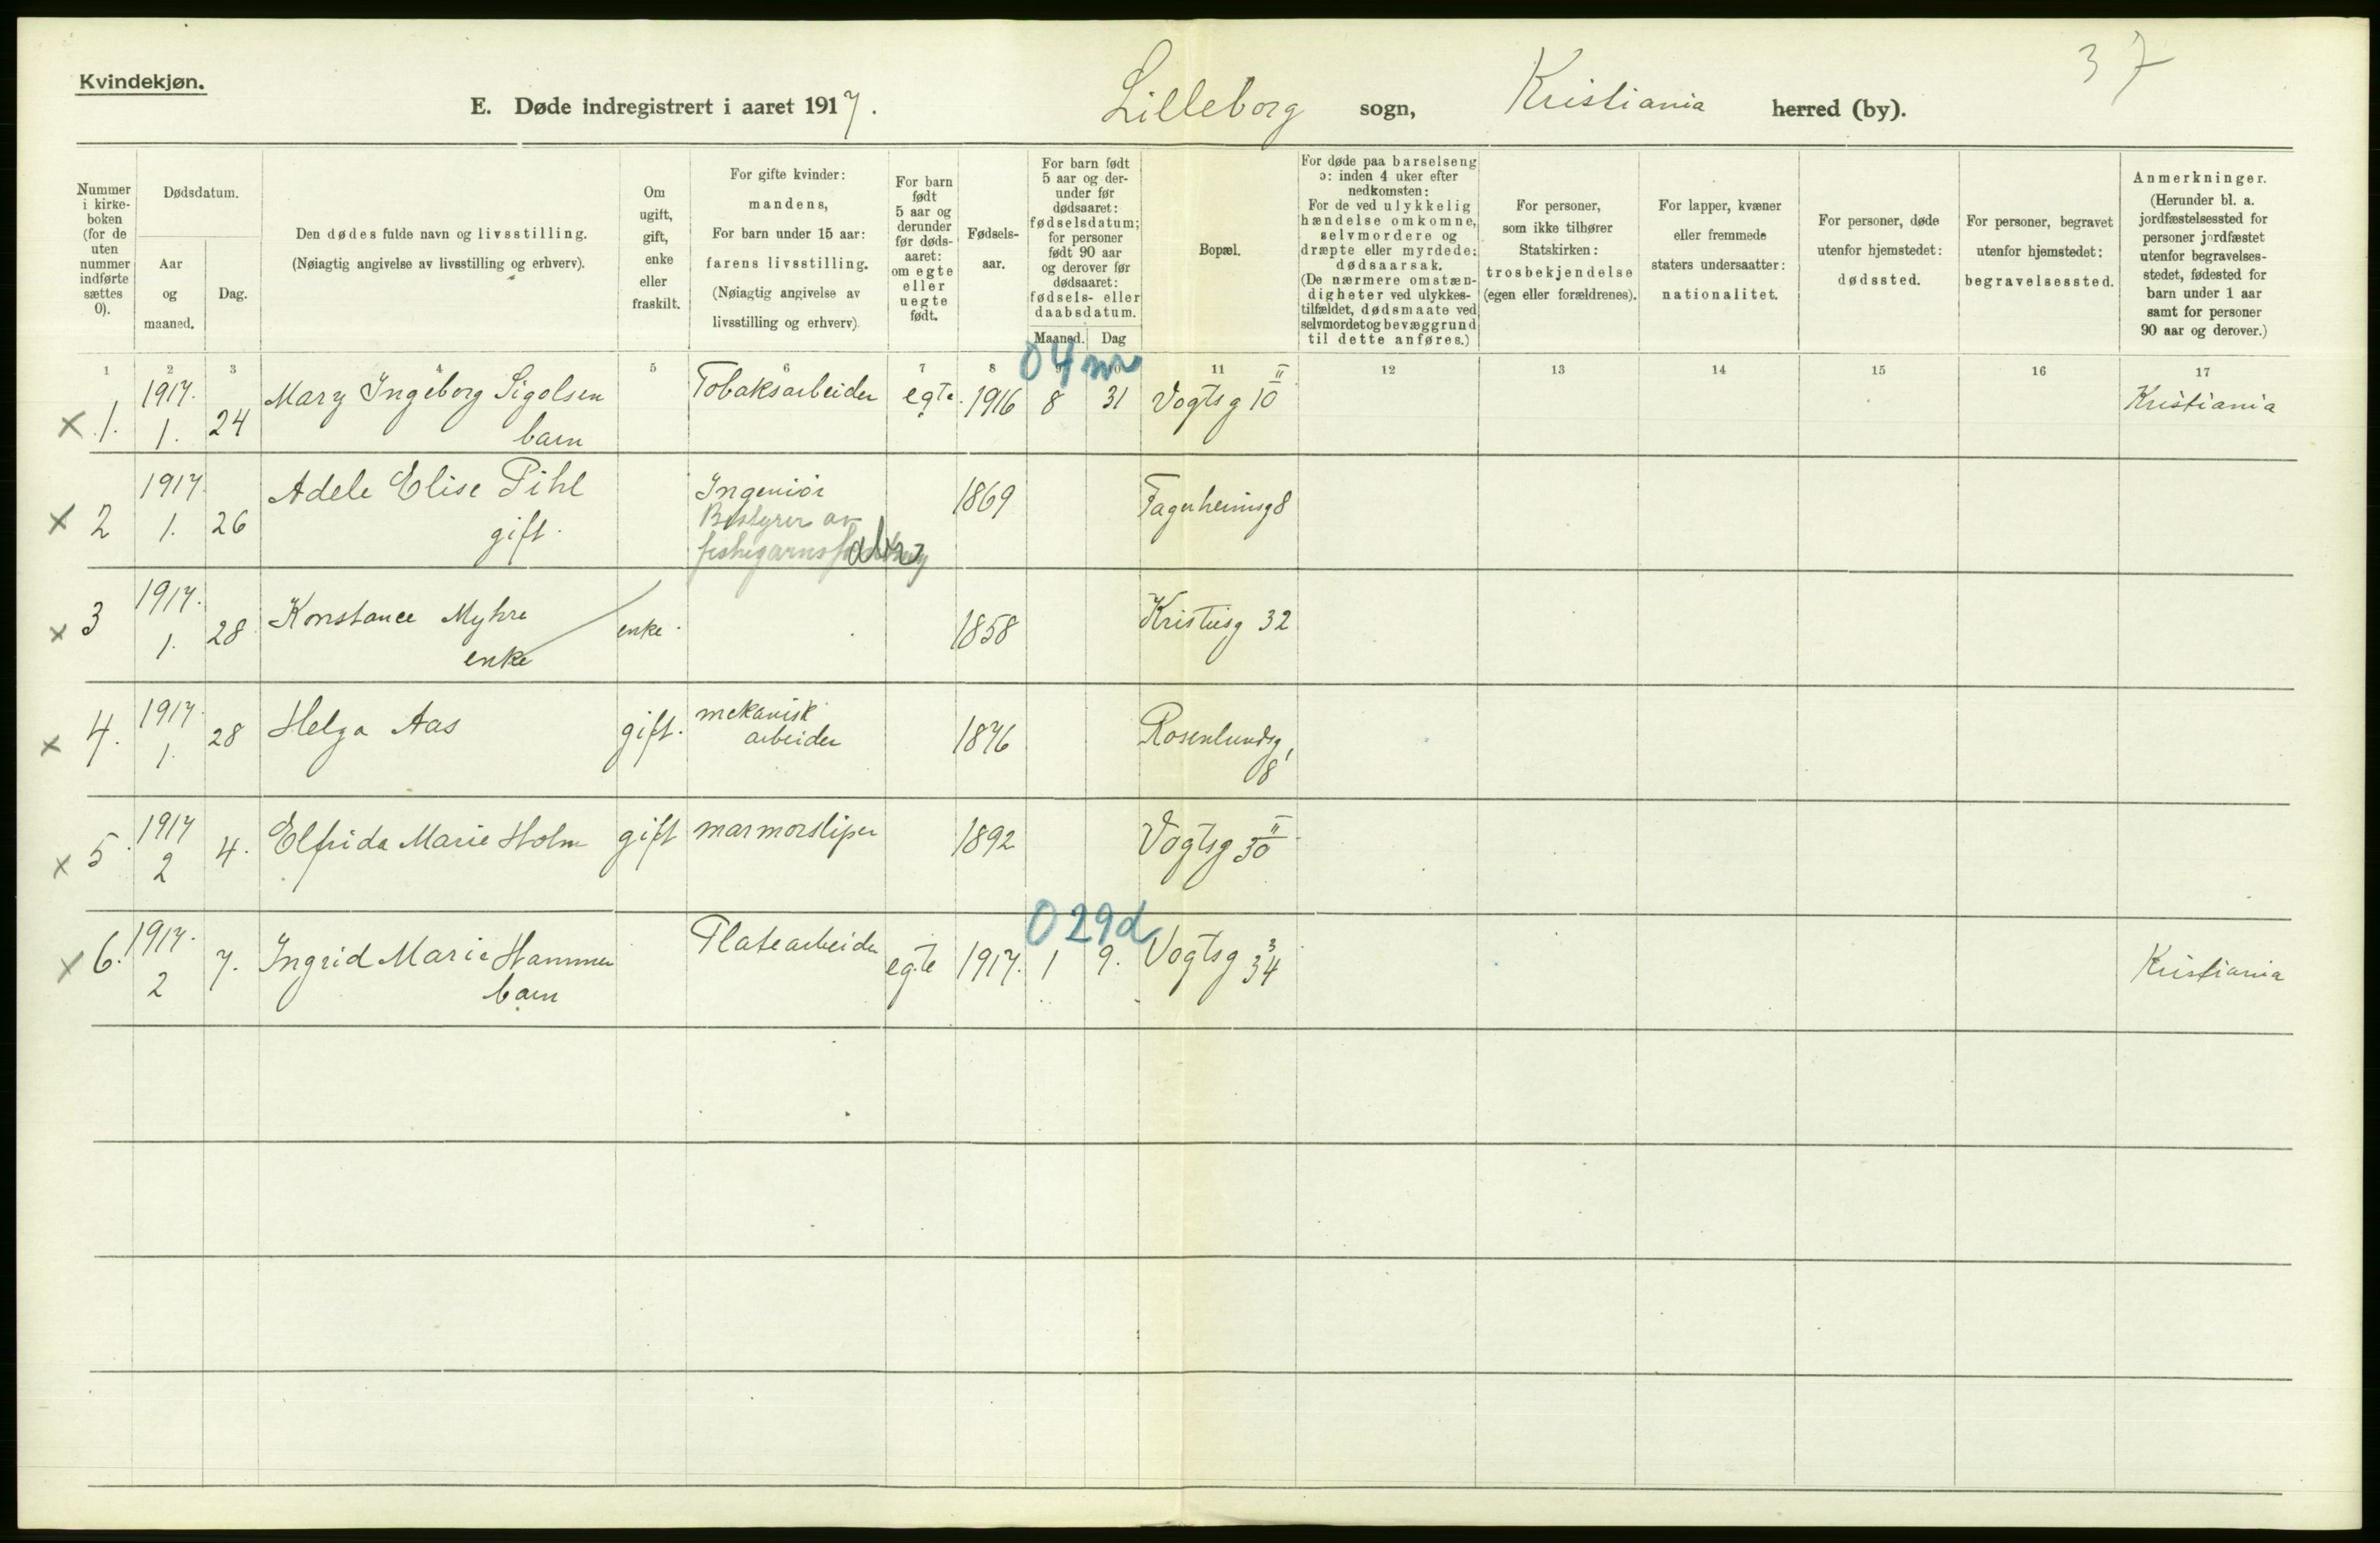 Kvindekjøn.
37
E. Døde indregistrert i aaret 1917.
Lilleborg sogn, Kristiania herred (by).
Nummer i kirke-boken (for de uten nummer indførte sættes 0).
Dødsdatum.
Aar og maaned.
Dag.
Den dødes fulde navn og livsstilling.
(Nøiagtig angivelse av livsstilling og erhverv).
Om ugift, gift, enke eller fraskilt.
For gifte kvinder: mandens,
For barn under 15 aar: farens livsstilling.
(Nøiagtig angivelse av livsstilling og erhverv)
For barn født 5 aar og derunder før døds-aaret: om egte eller uegte født.
Fødsels-aar.
For barn født 5 aar og der-under før dødsaaret: fødselsdatum; for personer født 90 aar og derover før dødsaaret: fødsels- eller daabsdatum.
Maaned. Dag
Bopæl.
For døde paa barselseng ɔ: inden 4 uker efter nedkomsten:
For de ved ulykkelig hændelse omkomne, selvmordere og dræpte eller myrdede: dødsaarsak.
(De nærmere omstæn-digheter ved ulykkes-tilfældet, dødsmaate ved selvmordet og bevæggrund til dette anføres.)
For personer, som ikke tilhører Statskirken: trosbekjendelse (egen eller forældrenes).
For lapper, kvæner eller fremmede staters undersaatter: nationalitet.
For personer, døde utenfor hjemstedet: dødssted.
For personer, begravet utenfor hjemstedet: begravelsessted.
Anmerkninger.
(Herunder bl. a. jordfæstelsessted for personer jordfæstet utenfor begravelses-stedet, fødested for barn under 1 aar samt for personer 90 aar og derover.)
1 2 3 4 5 6 7 8 9 10 11 12 13 14 15 16 17
04 m
x 1. 1917. 1. 24 Mary Ingeborg Sigolsen barn Tobaksarbeider egte. 1916 8 31 Vogtsg 10 II Kristiania
x 2 1917. 1. 26 Adele Elise Pihl gift. Ingeniør Bestyrer av fiskegarnsfabrik 1869 Fagerheimsg 8
x 3 1917. 1. 28 Konstance Myhre enke enke. 1858 Kristiesg 32
x 4. 1917. 1. 28 Helga Aas gift. mekanisk arbeider 1876 Rosenlundsg, 8
x 5. 1917 2 4. Elfrida Marie Holm gift marmorsliper 1892 Vogtsg 30 II
029d
x 6. 1917. 2 7. Ingrid Marie Hammer barn Platearbeider egte 1917. 1 9. Vogtsg 34 3 Kristiania